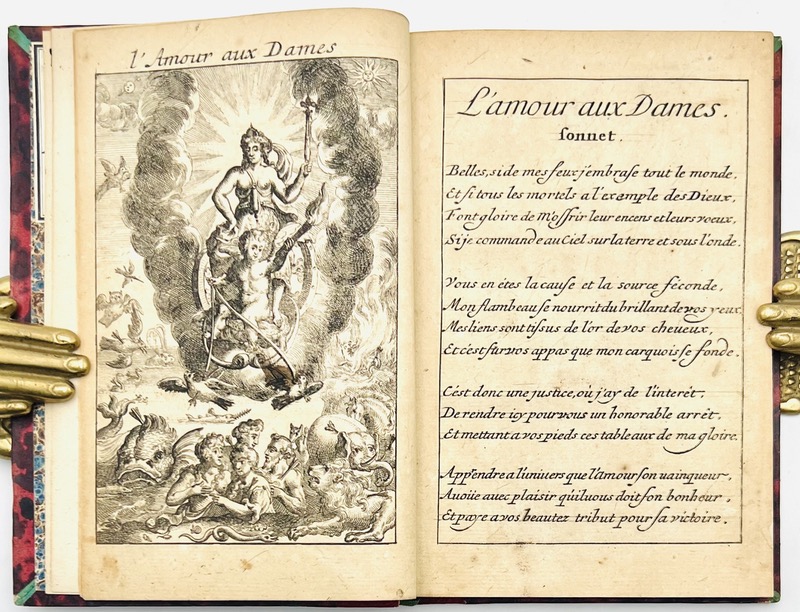 l'Amour aux Dames
L'amour aux Dames.
ſonnet.
Belles, si de mes feux j'embraſe tout le monde,
Et ſi tous les mortels a l'exemple des Dieux,
Font gloire de M'offrir leur encens et leurs voeux,
Si je commande au Ciel sur la terre et sous l'onde.
Vous en étes la cauſe et la source féconde,
Mon flambeau se nourrit du brillant de vos yeux,
Mes liens sont tiſsus de l'or de vos cheueux,
Et c'est ſur vos appas que mon carquois ſe fonde.
C'ést donc une justice, où j'ay de l'interêt,
De rendre icy pour vous un honorable arrêt,
Et mettant a vos pieds ces tableaux de ma gloire.
Apprendre a l'uniuers que l'amour ſon uainqueur,
Auoüe auec plaisir qu'il uous doit ſon bonheur,
Et paye a vos beautez tribut pour ſa victoire.